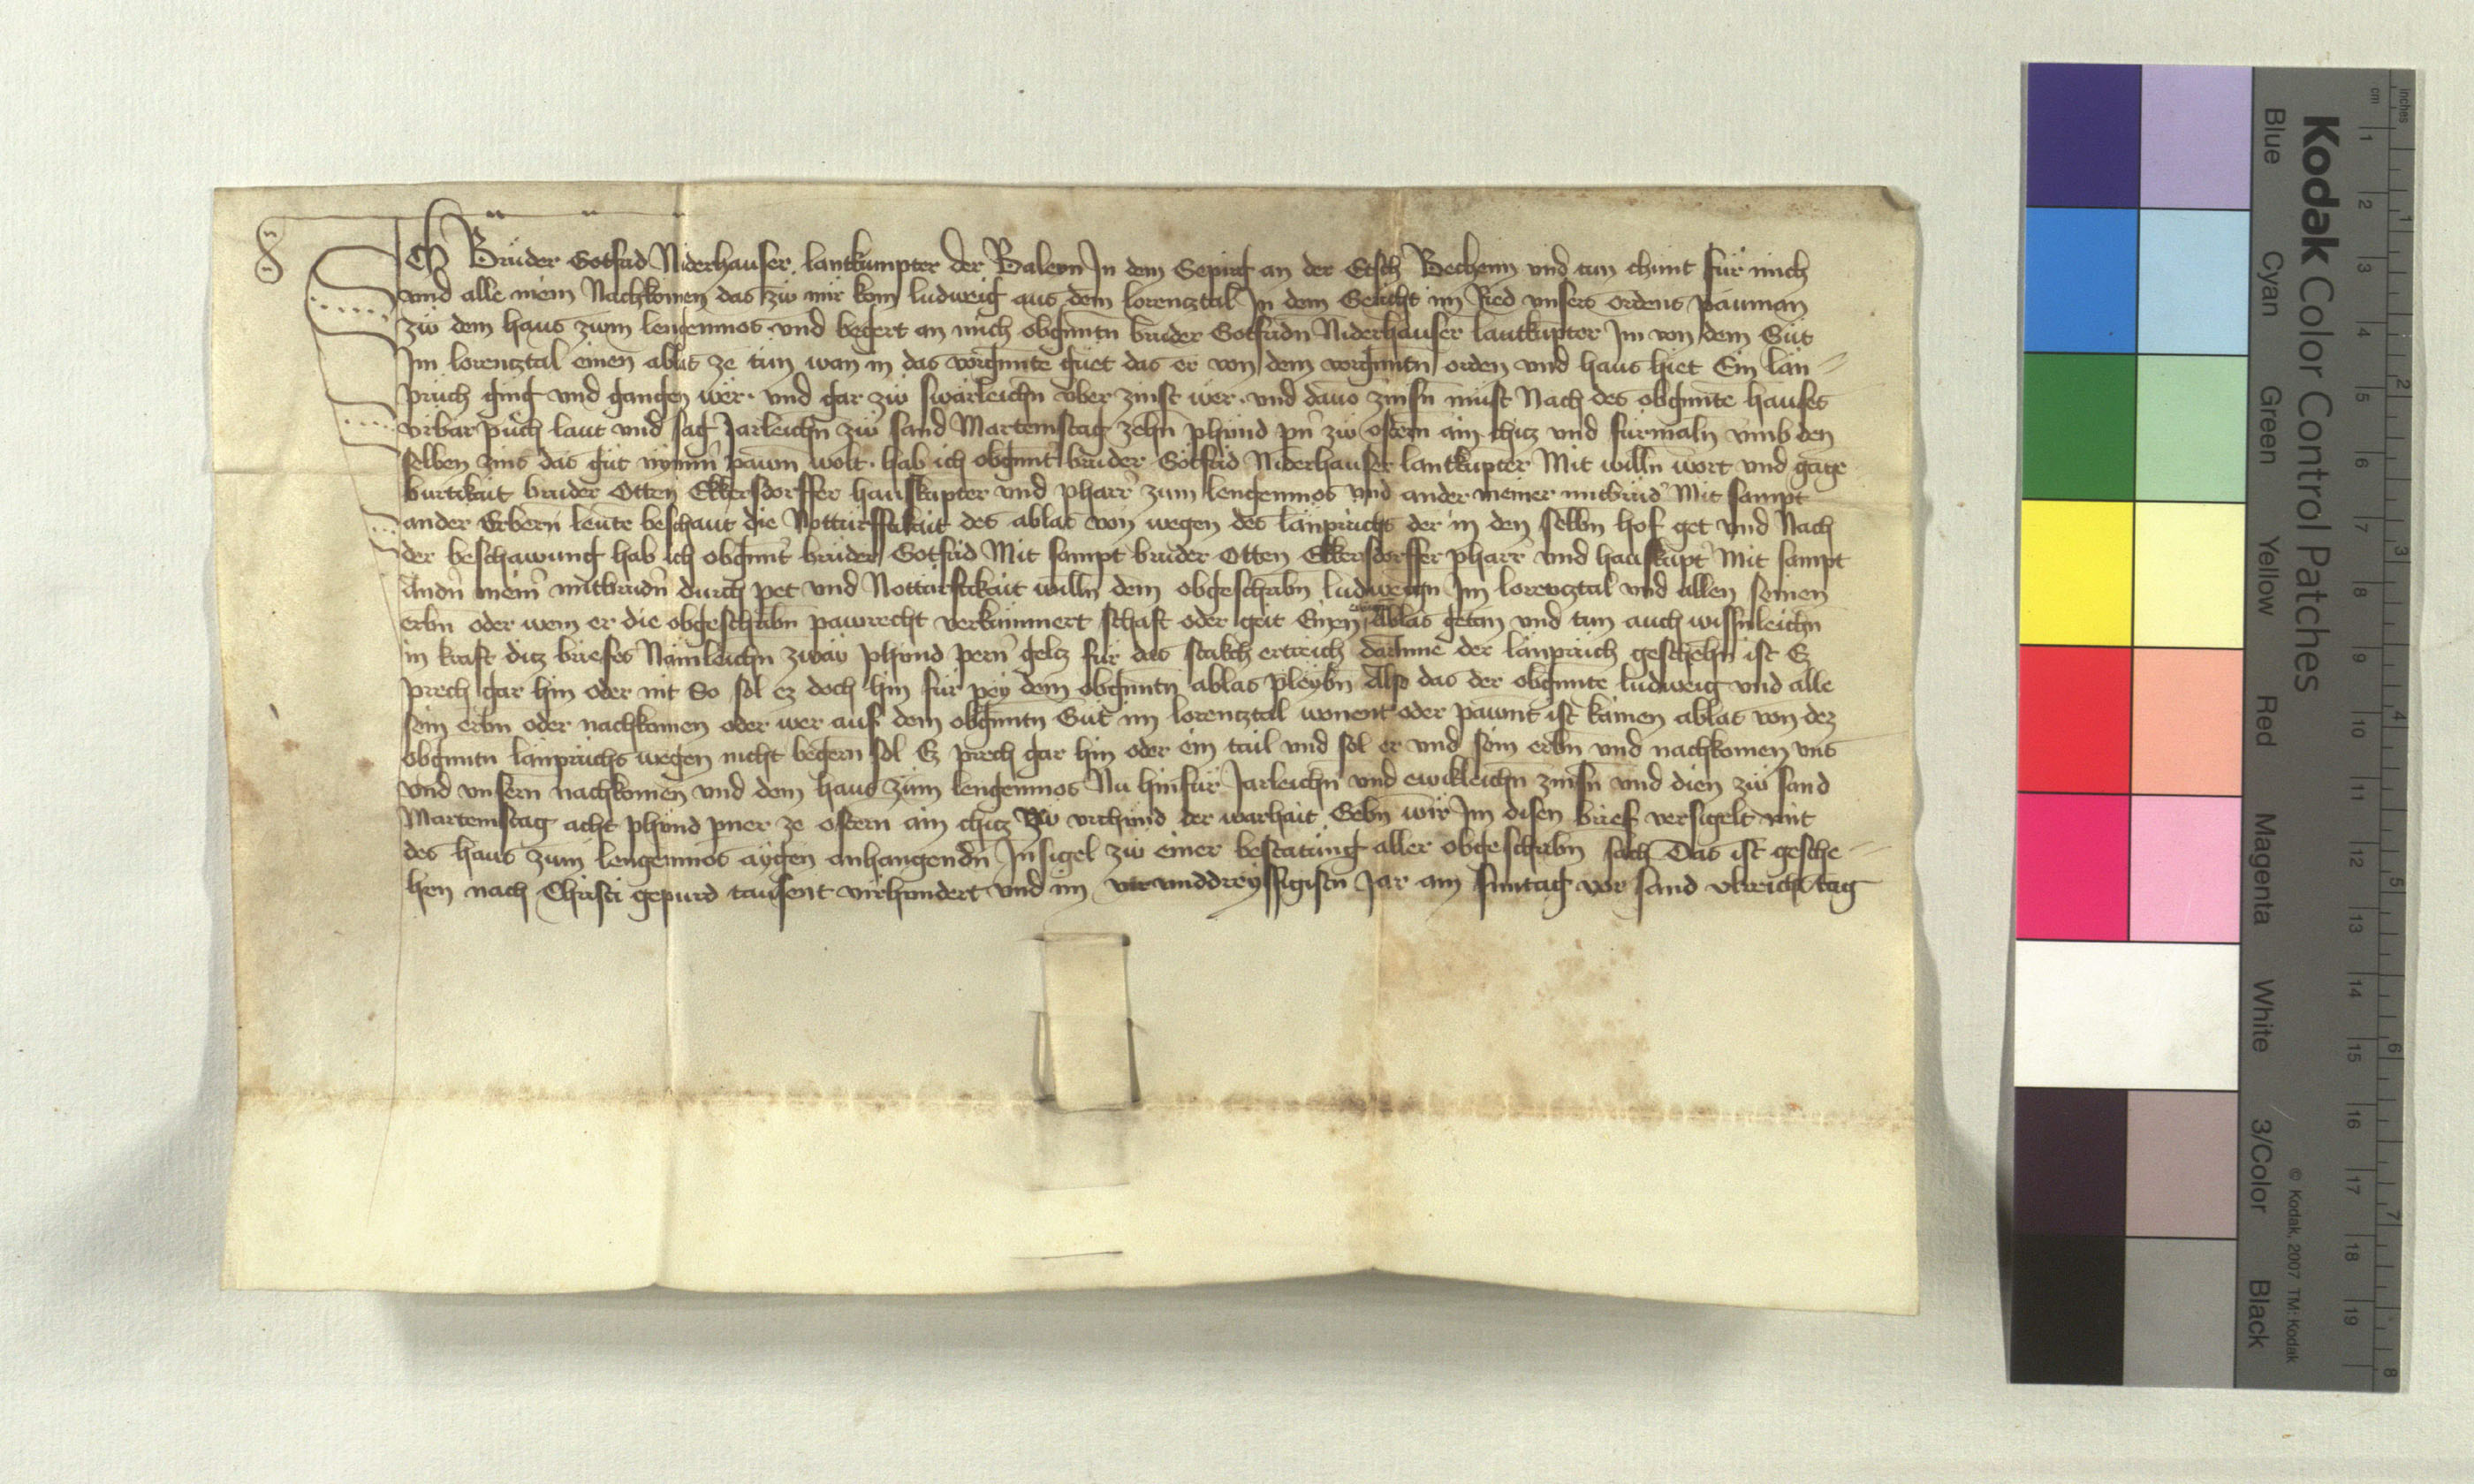 Ich Brüder Gotfrid Niderhauser lantkumpter der Baleyn In dem Gepirg an der Etsch Bechenn und tun chunt für mich
vnd alle mein Nachkomen das zw mir kom ludweig aus dem lorenztal In dem Gericht im Ried vnsers ordens pauman
zw dem haus zum lengenmos vnd begert an mich obgnntn bruder Gotfridn Niderhauser lantkupter Im von dem Güt
Im lorenztal einen ablas ze tun wan in das vorgnnte guet das er von dem vorgnntn orden vnd haus hiet Ein län
prüch ging vnd gangen wer vnd gar zw swärleichn vber zinst wer vnd dauo zinsn müst Nach des obgnnte hauses
vrbar püch laut vnd sag Jarleichn zw sand Marteinstag zehn phund pn zw ostern ain chiz vnd fürmaln vmb den
selben zins das güt nymm pawn wolt hab ich obgnnt bruder Götfrid Niderhauser lantkupter Mit willn wort vnd gage
burtikait bruder Otten Ekkersdorffer hauskupter vnd pharr zum lengenmos vnd ander meiner mitbrüd Mit sampt
ander Erbern leute beschaut die Notturfftikait des ablas von wegen des länprüchs der in den selbn hof get vnd Nach
der beschawung hab ich obgnnt brüder Gotfrid Mit sampt bruder Otten Ekkersdorffer pharr vnd hauskupt Mit sampt
Andn mein mitbrudn durch pet vnd Notturftikait willn dem obgeschribn ludweign Im lorenztal vnd allen seinen
erbn oder wem er die obgeschribn pawrecht verkümmert schaft oder geit Einen Ablas getan vnd tun auch wissnleichn
in kraft ditz briefes Nämleichn zwaӱ phund pern geltz für das stukch ertreich darinne der länprüch geschehn ist Ez
prech gar hin oder nit So sol ez doch hin für peӱ dem obgnntn ablas pleӱbn Also das der obgnnte ludweig vnd alle
sein erbn oder nachkomen oder wer auf dem obgnntn Güt im lorenztal wonent oder pawnt ist kainen ablas von dez
obgnntn länprüchs wegen nicht begern sol Ez prech gar hin oder ein tail vnd sol er vnd sein erbn vnd nachkomen vns
vnd vnsern nachkomen vnd dem haus zum lengenmos Nu hinfür Jarleichn vnd ewikleichn zinsn vnd dien zw sand
Marteinstag acht phund pner ze ostern ain chitz Zw vrchund der warhait Gebn wir Im disen brief versigelt mit
des haus zum lengenmos aӱgen anhangendn Insigel zw einer bestatung aller obgeschribn sach Das ist gesche
hen nach Christi gepurd tausent virhundert vnd im vir vnddreӱssigistn Jar am suntag vor sand vlreichstag
Kodak Color Control Patches
Blue Cyan Green Yellow Red Magenta White 3/Color Black
© Kodak, 2007 TM: Kodak
cm 1 2 3 4 5 6 7 8 9 10 11 12 13 14 15 16 17 18 19
inches 1 2 3 4 5 6 7 8